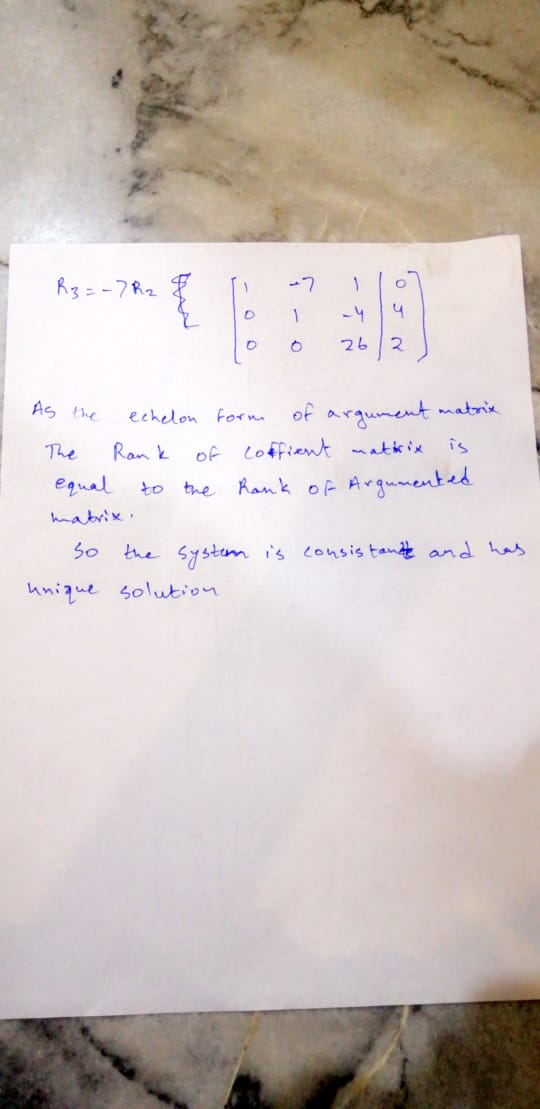 R3 = -7R2 [ 1 -7 1 | 0 ]
0 1 -4 | 4
0 0 26 | 2
As the echelon form of argument matrix
The Rank of Coffient matrix is
equal to the Rank of Argumented
matrix.
So the System is consistant and has
unique solution